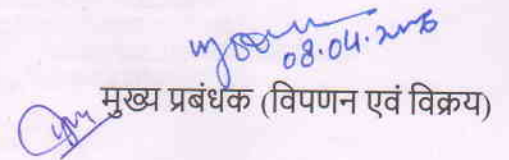 08.04.2026
मुख्य प्रबंधक (विपणन एवं विक्रय)